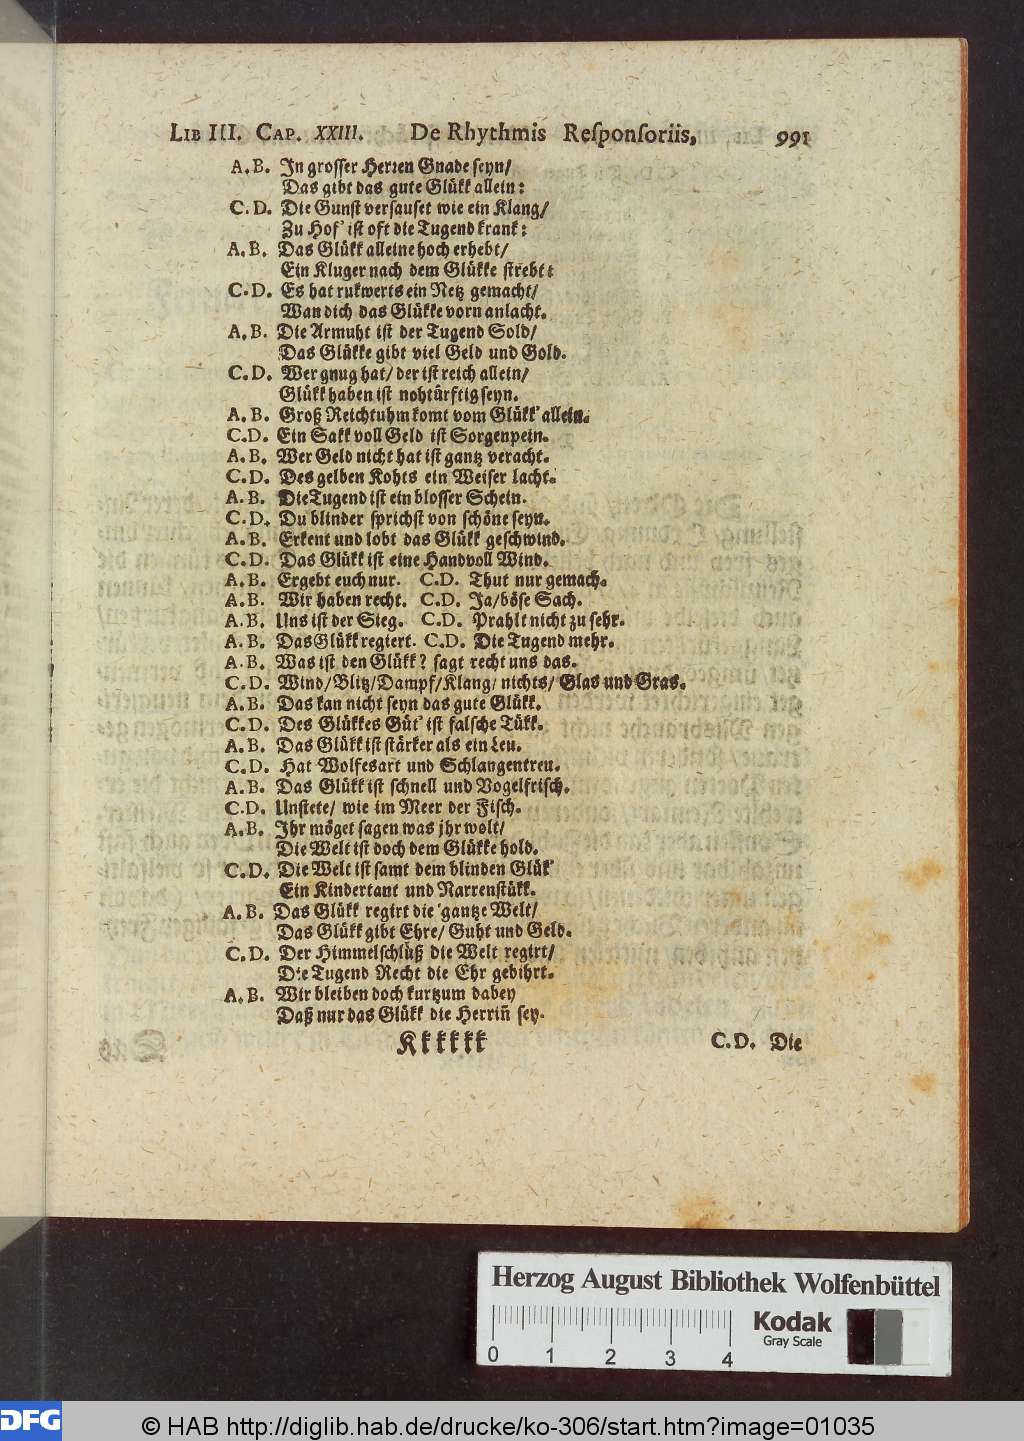 LIB III. CAP. XXIII. De Rhythmis Reſponſoriis, 991
A.B. In groſſer Herren Gnade ſeyn/
Das gibt das gute Glükk allein:
C.D. Die Gunſt verſauſet wie ein Klang/
Zu Hof' iſt oft die Tugend krank:
A.B. Das Glükk alleine hoch erhebt/
Ein Kluger nach dem Glükke ſtrebt:
C.D. Es hat rukwerts ein Netz gemacht/
Wan dich das Glükke vorn anlacht.
A.B. Die Armuht iſt der Tugend Sold/
Das Glükke gibt viel Geld und Gold.
C.D. Wer gnug hat/ der iſt reich allein/
Glükk haben iſt nohtürftig ſeyn.
A.B. Groß Reichtuhm komt vom Glükk' allein.
C.D. Ein Sakk voll Geld iſt Sorgenpein.
A.B. Wer Geld nicht hat iſt gantz veracht.
C.D. Des gelben Kohts ein Weiſer lacht.
A.B. Die Tugend iſt ein bloſſer Schein.
C.D. Du blinder ſprichſt von ſchöne ſeyn.
A.B. Erkent und lobt das Glükk geſchwind.
C.D. Das Glükk iſt eine Handvoll Wind.
A.B. Ergebt euch nur. C.D. Thut nur gemach.
A.B. Wir haben recht. C.D. Ja/böſe Sach.
A.B. Uns iſt der Sieg. C.D. Prahlt nicht zu ſehr.
A.B. Das Glükk regiert. C.D. Die Tugend mehr.
A.B. Was iſt den Glükk? ſagt recht uns das.
C.D. Wind/Blitz/Dampf/Klang/ nichts/ Glas und Gras.
A.B. Das kan nicht ſeyn das gute Glükk.
C.D. Des Glükkes Güt' iſt falſche Tükk.
A.B. Das Glükk iſt ſtärker als ein Leu.
C.D. Hat Wolfesart und Schlangentreu.
A.B. Das Glükk iſt ſchnell und Vogelfriſch.
C.D. Unſtete/ wie im Meer der Fiſch.
A.B. Ihr möget ſagen was jhr wolt/
Die Welt iſt doch dem Glükke hold.
C.D. Die Welt iſt ſamt dem blinden Glük'
Ein Kindertant und Narrenſtükk.
A.B. Das Glükk regirt die gantze Welt/
Das Glükk gibt Ehre/ Guht und Geld.
C.D. Der Himmelſchlüß die Welt regirt/
Die Tugend Recht die Ehr gebihrt.
A.B. Wir bleiben doch kurtzum dabey
Daß nur das Glükk die Herrin̄ ſey.
Kkkkkk C.D. Die
Herzog August Bibliothek Wolfenbüttel
Kodak
Gray Scale
0 1 2 3 4
DFG © HAB http://diglib.hab.de/drucke/ko-306/start.htm?image=01035